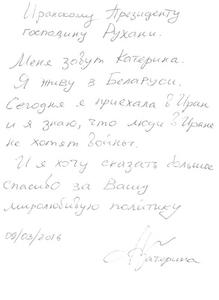 Иранскому Президенту
господину Рухани.
Меня зовут Катерина.
Я живу в Беларуси.
Сегодня я приехала в Иран
и я знаю, что люди в Иране
не хотят войны.
И я хочу сказать большое
спасибо за Вашу
миролюбивую политику
09/03/2016
Катерина